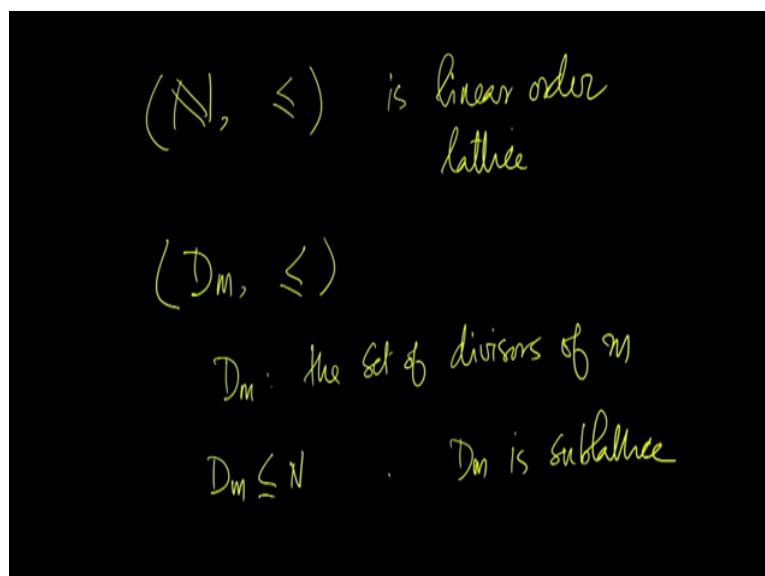 (ℕ, ≤) is linear order
lattice
(Dm, ≤)
Dm : the set of divisors of m
Dm ⊆ N . Dm is sublattice